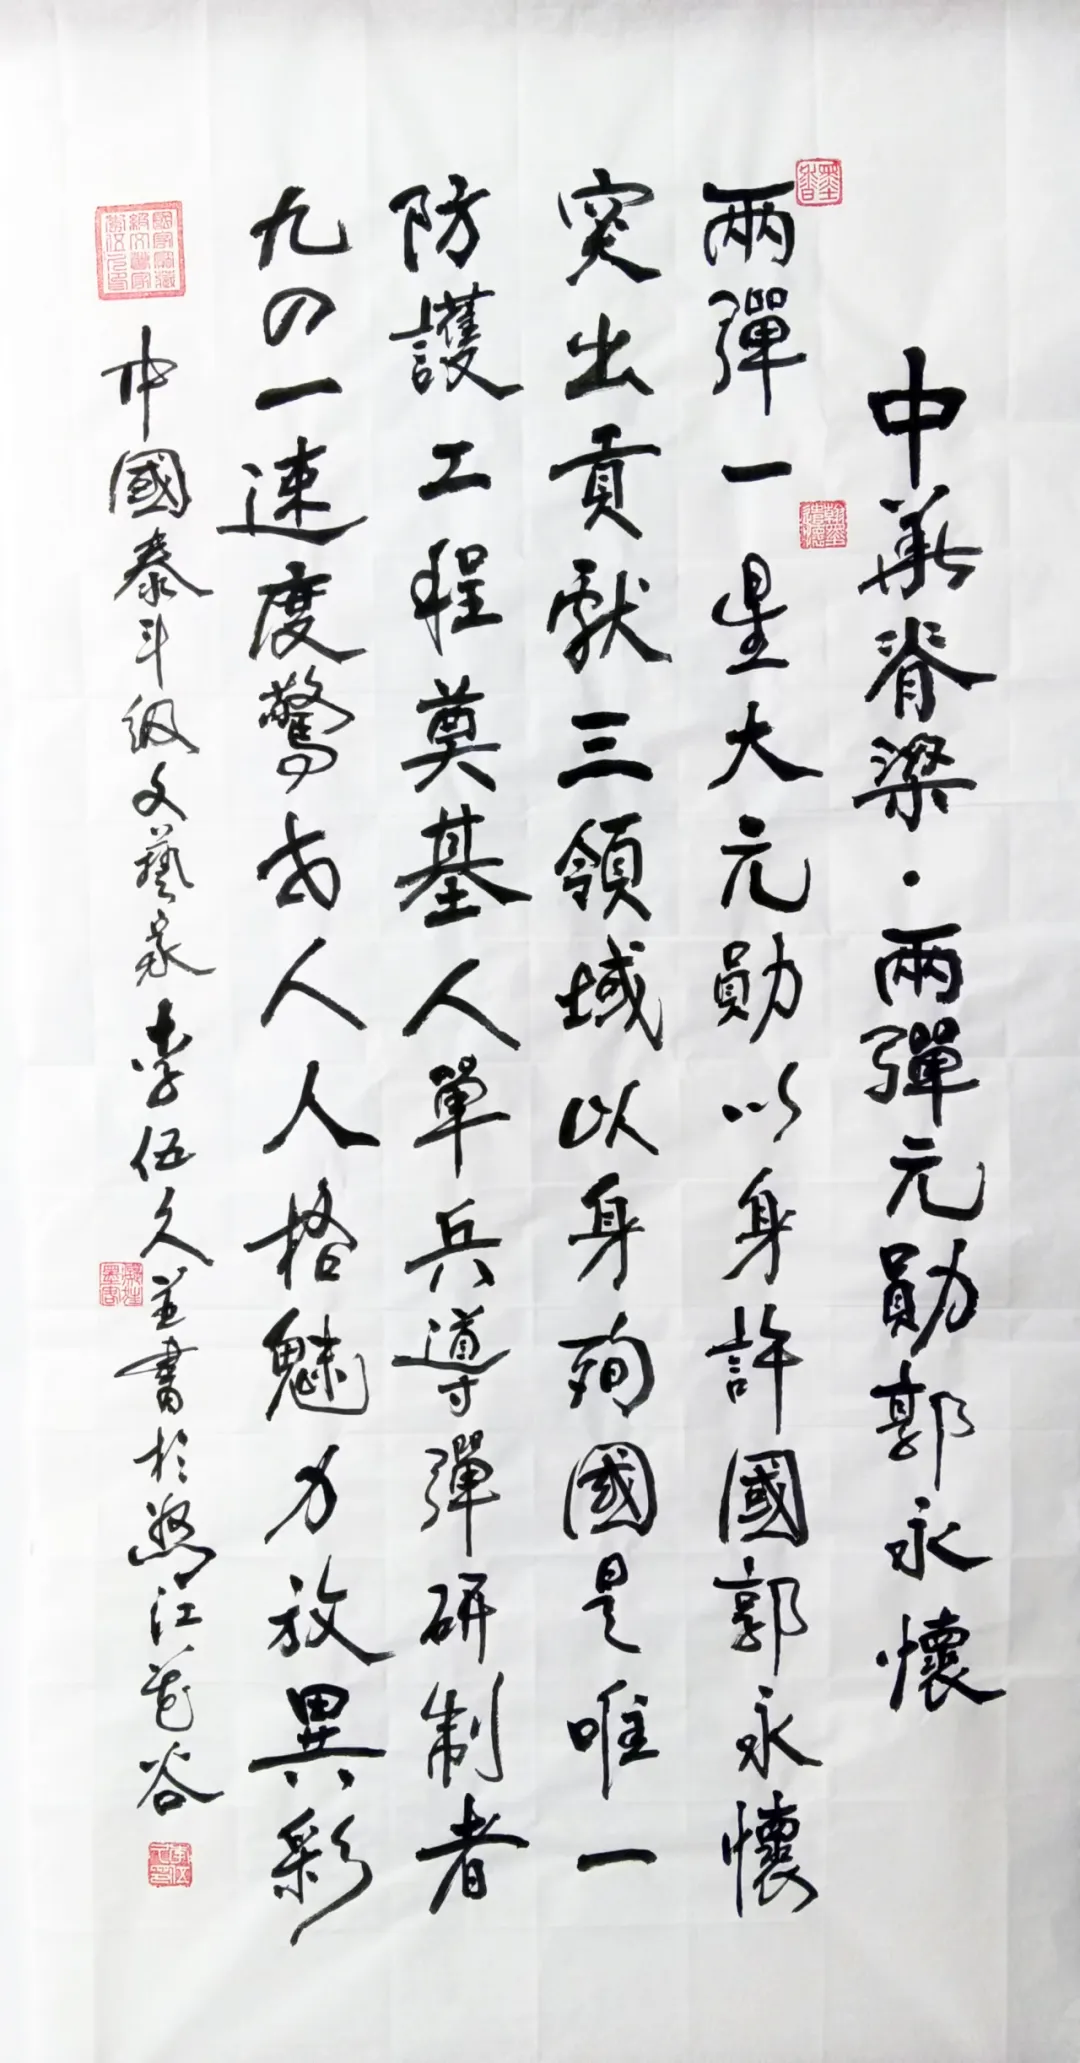 中華脊梁·兩彈元勛郭永懷
兩彈一星大元勛以身許國郭永懷
突出貢獻三領域以身殉國是唯一
防護工程奠基人單兵導彈研制者
九四一速度驚世人人格魅力放異彩
中國泰斗級文藝家李伍久並書於怒江花谷